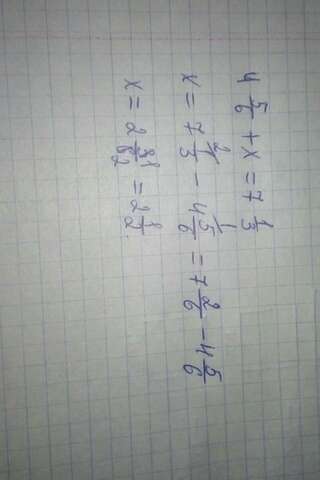 4 5/6 + x = 7 1/3
x = 7 1/3 - 4 5/6 = 7 2/6 - 4 5/6
x = 2 3/6 = 2 1/2